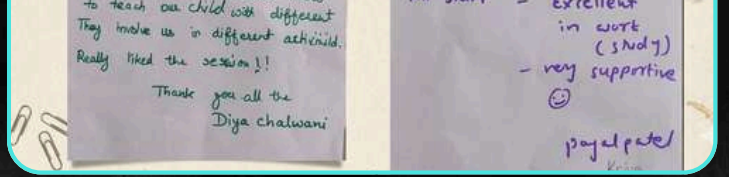 to teach our child with different
They involve us in different activinild.
Really liked the session!!
Thank you all the
Diya Chalwani
excellent
in work
(study)
- very supportive
☺
payal patel